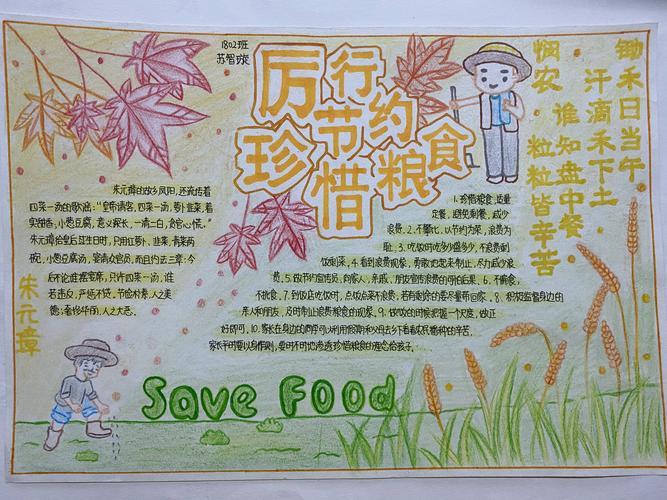 1802班
苏智旋
厉行
节约
珍惜粮食
悯农
锄禾日当午
汗滴禾下土
谁知盘中餐
粒粒皆辛苦
朱元璋的故乡凤阳,还流传着
四菜一汤的歌谣:“皇帝请客,四菜一汤,萝卜韭菜,着
实甜香,小葱豆腐,意义深长,一清二白,贪官心慌。”
朱元璋给皇后过生日时,只用红萝卜、韭菜,青菜两
碗,小葱豆腐汤,宴请众官员。而且约法三章:今
后不论谁摆宴席,只许四菜一汤,谁
若违反,严惩不贷。节俭朴素,人之美
德;奢侈华丽,人之大恶。
朱元璋
1.珍惜粮食,适量
定餐,避免剩餐,减少
浪费。2.不攀比,以节约为荣,浪费为
耻。3.吃饭时吃多少盛多少,不浪费剩
饭剩菜。4.看到浪费现象,勇敢地起来制止,尽力减少浪
费。5.做节约宣传员,向家人,亲戚,朋友宣传浪费的可怕后果。6.不偏食,
不挑食。7.到饭店吃饭时,点饭点菜不浪费,若有剩余的要尽量带回家。8.积极监督身边的
亲人和朋友,及时制止浪费粮食的现象。9.做饭的时候把握一个尺度,做正
好即可。10.家长在身边的
家长平时要以身作则,要时不时地渗透珍惜粮食的理念给孩子。
Save Food